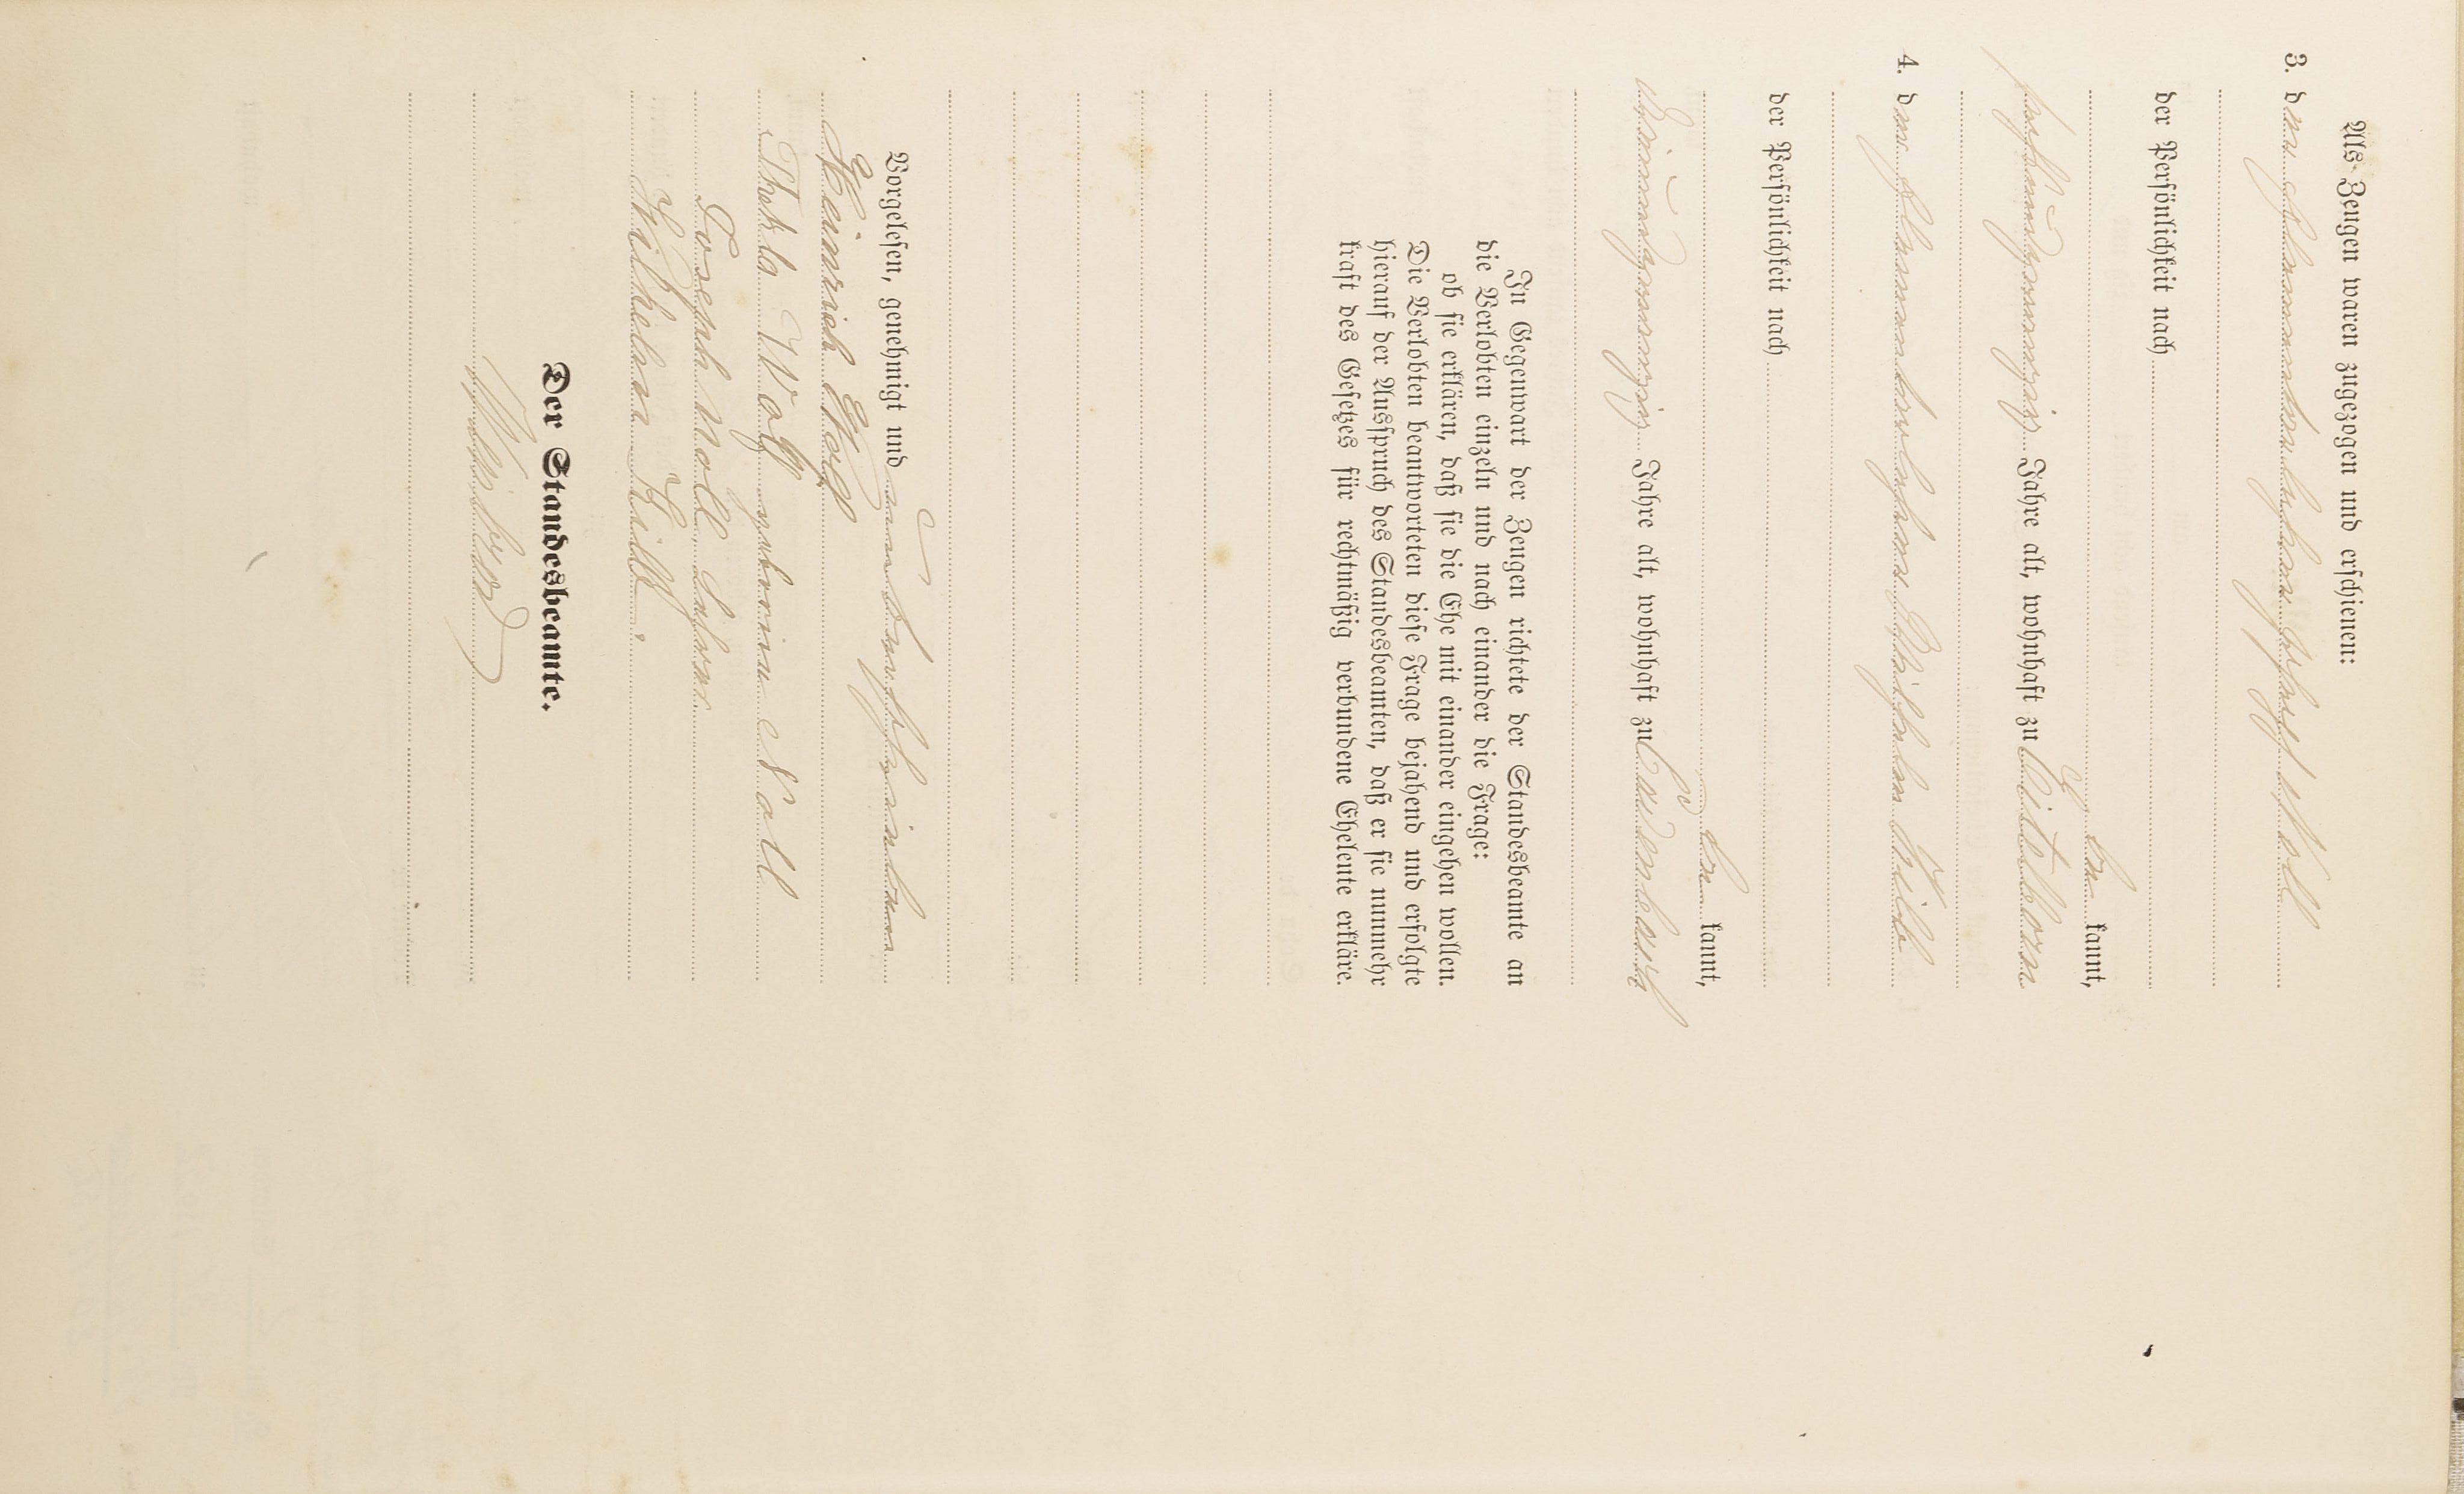 Als Zeugen waren zugezogen und erschienen:
3. der Elementarlehrer Joseph Noll
der Persönlichkeit nach
be kannt,
Jahre alt, wohnhaft zu Eitelborn
4. der Elementarlehrer Wilhelm Kilb
der Persönlichkeit nach
be kannt,
neunundzwanzig Jahre alt, wohnhaft zu
In Gegenwart der Zeugen richtete der Standesbeamte an
die Verlobten einzeln und nach einander die Frage:
ob sie erklären, daß sie die Ehe mit einander eingehen wollen.
Die Verlobten beantworteten diese Frage bejahend und erfolgte
hierauf der Ausspruch des Standesbeamten, daß er sie nunmehr
kraft des Gesetzes für rechtmäßig verbundene Eheleute erkläre.
Vorgelesen, genehmigt und unterschrieben
Heinrich Wolf
Thekla Wolf geborene Noll
Joseph Noll, Lehrer
Wilhelm Kilb.
Der Standesbeamte.